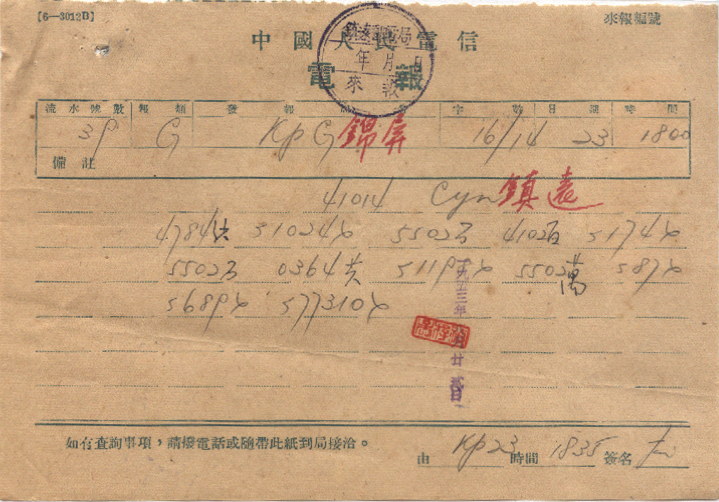 [6—3012B] 來報編號
中國人民電信
電報
鎮遠電信局
年 月 日
來報
流水號數 報類 發報局 字數 日期 時間
39 G KpG 錦屏 16/14 23 1800
備註
41014 Cyn 鎮遠
4784 31024 5502 4102百 5174
5502 0364共 5119 5502萬 587
5689 577310
五三年 月廿 日
如有查詢事項，請撥電話或隨帶此紙到局接洽。
由 Kp23 時間 1835 簽名